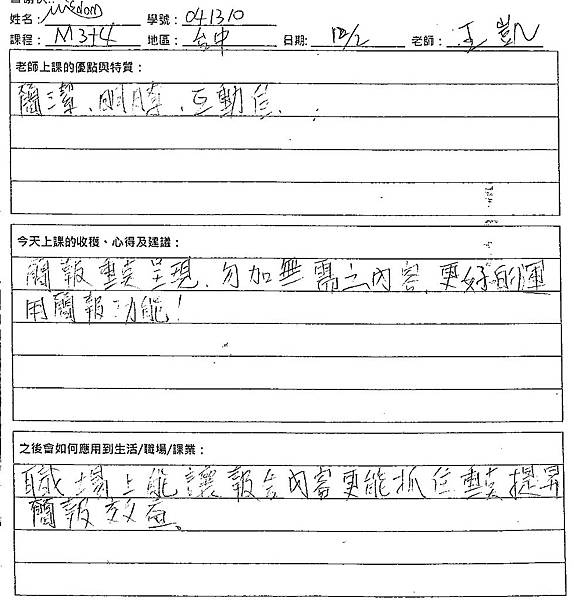 姓名: Wisdom 學號: 041310
課程: M3+4 地區: 台中 日期: 12/2 老師: 王凱
老師上課的優點與特質:
簡潔、明瞭、互動佳、
今天上課的收穫、心得及建議:
簡報重點呈現,勿加無需之內容,更好的運
用簡報功能!
之後會如何應用到生活/職場/課業:
職場上能讓報告內容更能抓住重點提昇
簡報效益。